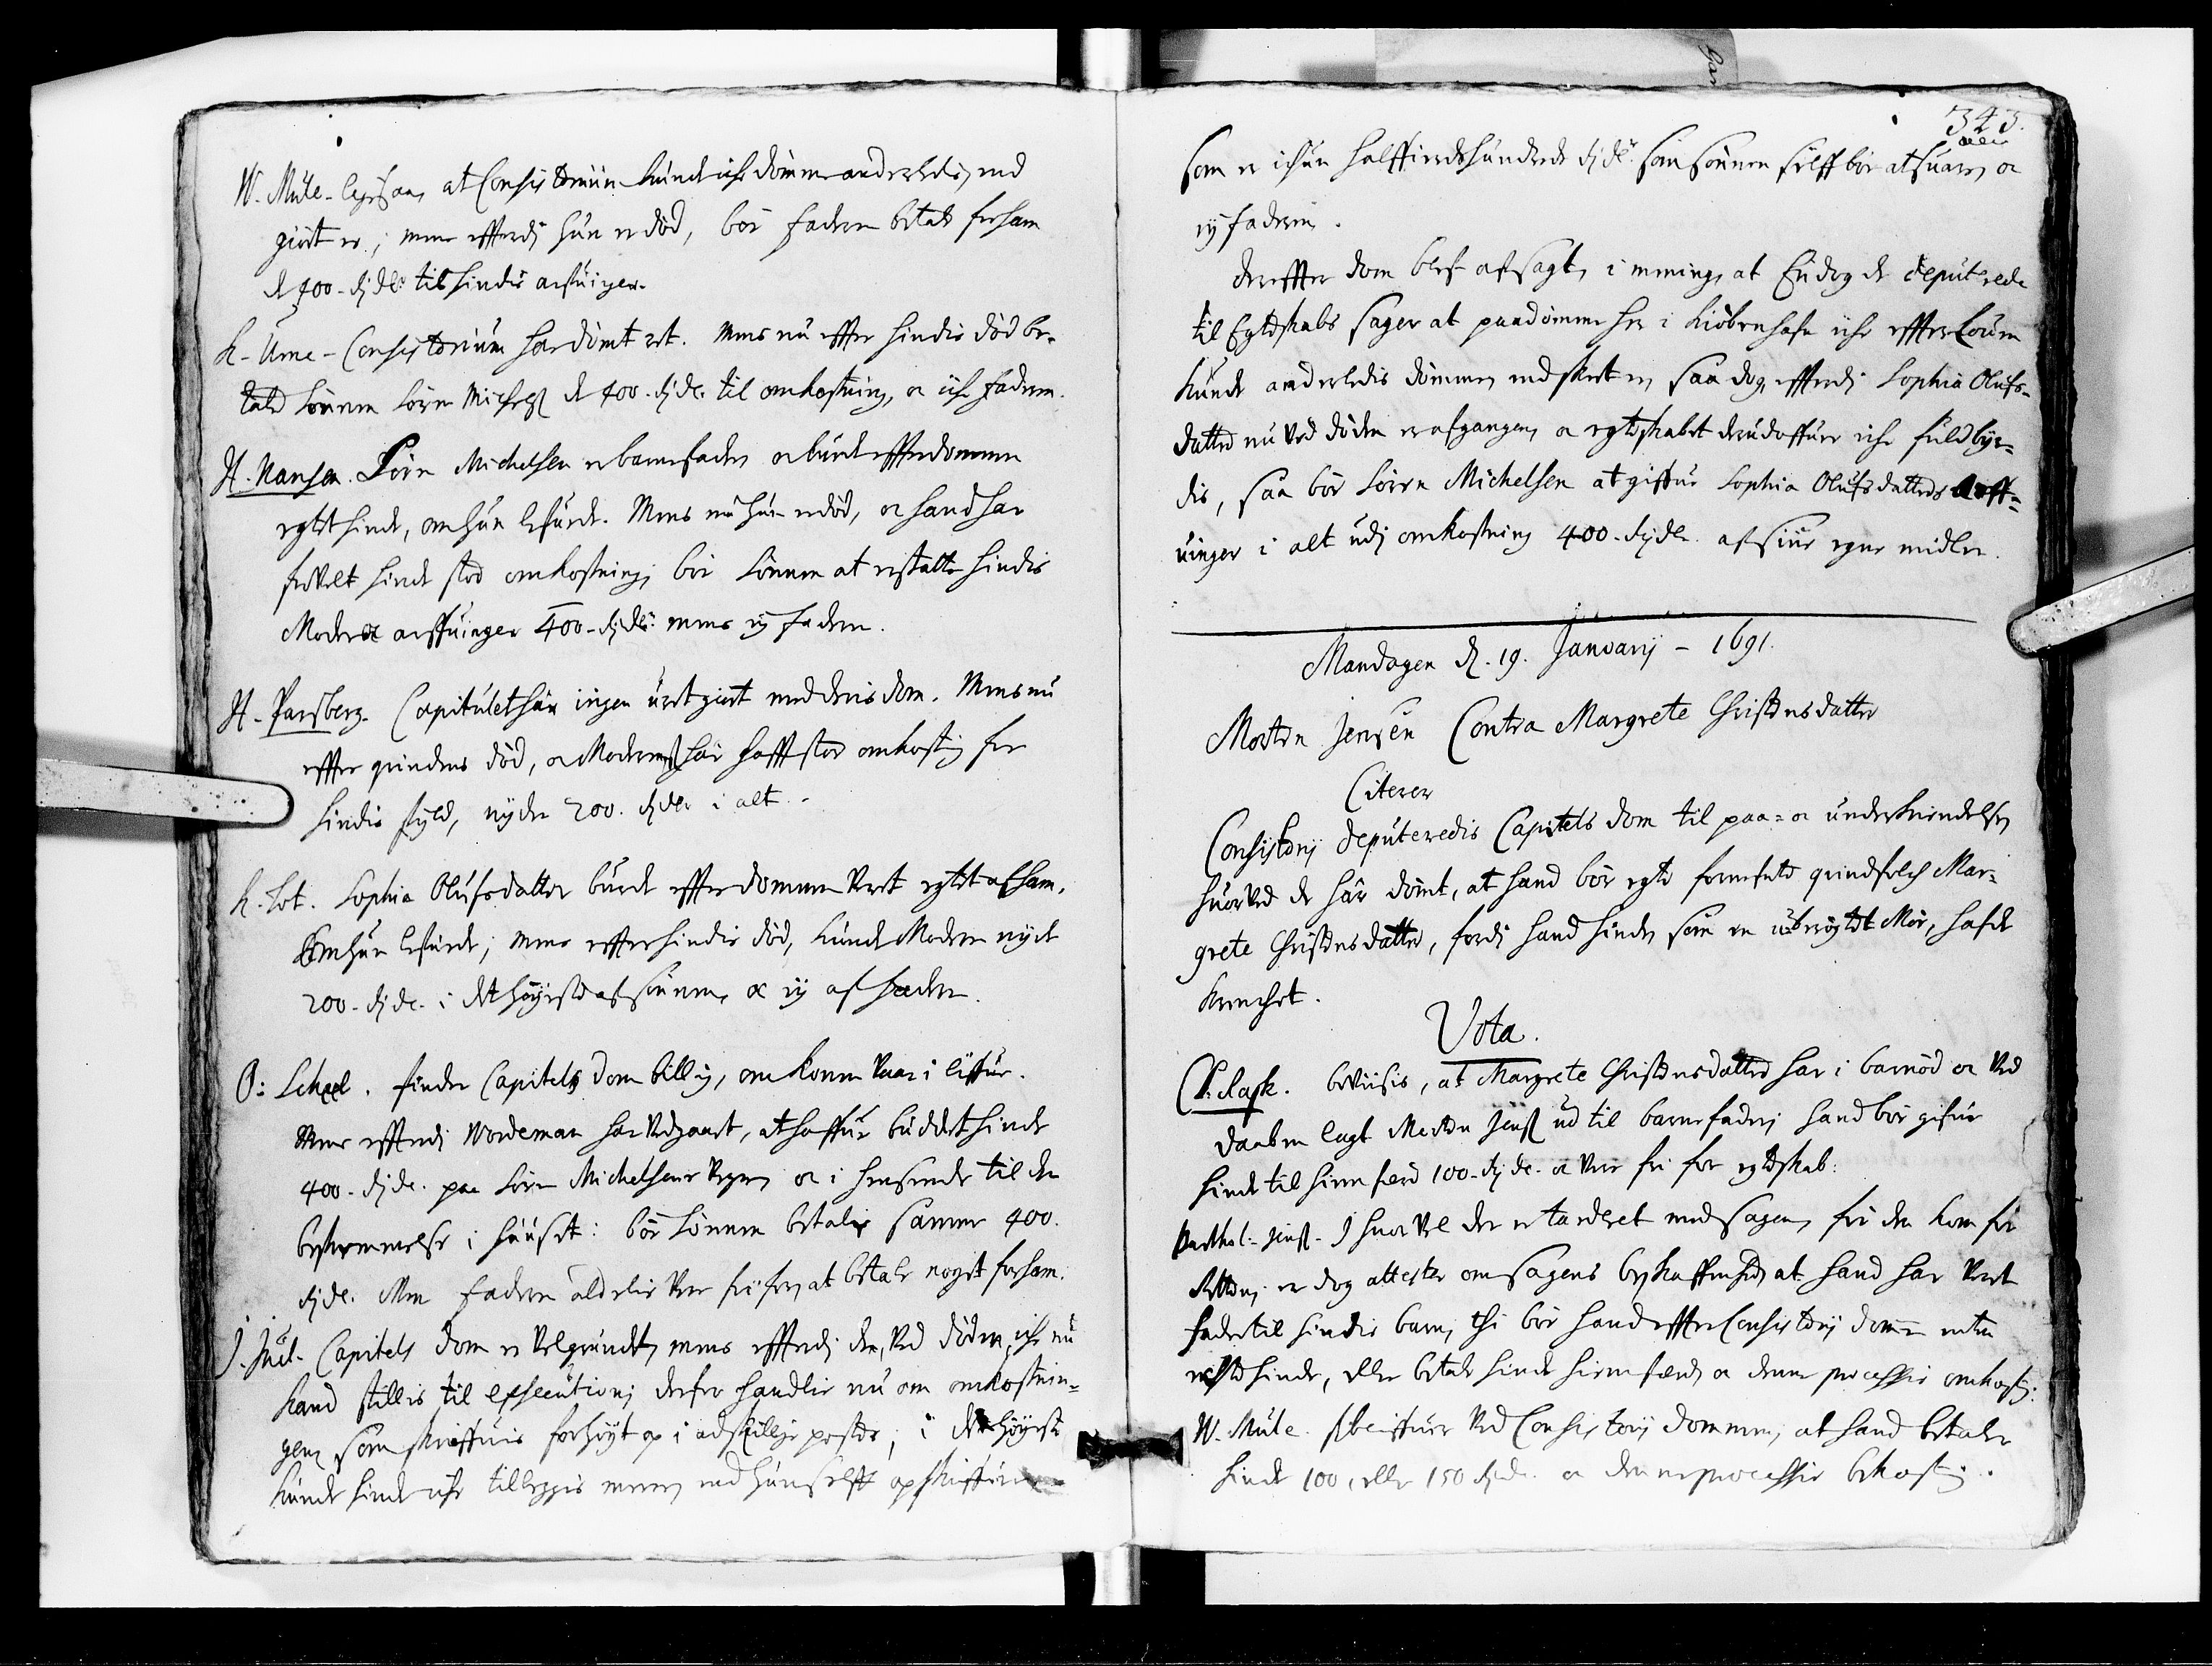 W. Mule. ligesaa, at Consistorium kunde iche dømme anderledis, end
giort er; mens efterdj hun er død, bør faderen betale for ham
de 400. sldlr. til hindis arfuinger.
K. Urne. Consistorium har dømt ret. Mens nu effter hindis død be-
tale sønnen Sørn Michelsøn de 400. sldr. til omkostning, oc iche faderen.
H. Nansen. Sørn Michelsen er barnefader, oc burde effter dommen
egtet hinde, om hun lefuede. Mens nu hun er død, oc hand har
hinde stor omkostning, bør sønnen at erstatte hindis
Moder oc arffuinger 400. sldlr. mens ej faderen.
H. Parsberg. Capitulet har ingen uret giort med deris dom. Mens nu
effter qvindens død, oc Moderen har hafft stor omkosting for
hindis skyld, nyder 200. sldlr. i alt.
K. Tot. Sophia Olufsdatter burde effter dommen veret egtet af ham,
om hun lefuede; mens effter hindis død, kunde Moderen nyde
200. sldr. i det høyeste af sønnen, oc ej af faderen.
O: Scheel. finder Capitels dom billig, om konen vaar i liffue.
Mens efterdj Wordeman har vedgaaet, at haffue buddet hinde
400. sldr. paa Sørn Michelsens vegne, oc i henseende til den
beskemmelse i huuset: bør sønnen betale samme 400.
sldr. Men faderen aldelis vere frj for, at betale noget for ham.
J. Juel. Capitels dom er velgrundet, mens efterdj den, ved døden, iche nu
kand stillis til execution; derfor handlis nu om omkostnin-
gen, som skriffuis forhøyt op i adskillige poster; i det høyeste
kunde hinde iche tilleggis meere, end hun self opskriffuer
343.
som er ichun halffierdehundrede sldlr. som sønnen sielff bør at suare, oc
ej faderen.
dereffter dom blef afsagt, i mening, at Endog de deputerede
til Egteskabs sager at paadømme her i Kiøbenhafn iche effter Loven
kunde anderledis dømme, end skeet er, saa dog, efterdj Sophia Olufs-
datter nu ved døden er afgangen, oc egteskabet derudoffuer iche fuldbyr-
dis, saa bør Sørrn Michelsen at giffue Sophia Olufsdatters Arff-
uinger i alt udj omkostning 400. sldlr. af siine egne midler.
Mandagen d. 19. Januarij – 1691.
Morten Jensen Contra Margrete Christensdatter
Citerer
Consistorij deputeredis Capitels dom til paa= oc underkiendelse,
huorved de har dømt, at hand bør egte forneffnte qvindfolch Mar-
grete Christensdatter, fordj hand hinde, som en uberøgtet Mør, hafde
krencket.
Vota.
C. Rask. beviisis, at Margrete Christensdatter har i barnød oc ved
daaben lagt Morten Jensøn ud til barnefader; hand bør gifue
hinde til hinn færd 100. sldr. oc vere fri for egteskab:
Barthol: Jensøn. I huor vel der er tardelet med sagen, før den kom for
Retten, er dog attester om sagens beskaffenhed, at hand har veret
fader til hindis barn, thi bør hand effter Consistorij dom enten
egte hinde, eller betale hinde hiemfærd, oc denne processis omkostg:
W. Mule. forbliffuer ved Consistorij dommen, at hand betaler
hinde 100, eller 150 sldr. oc denne processis bekosting.